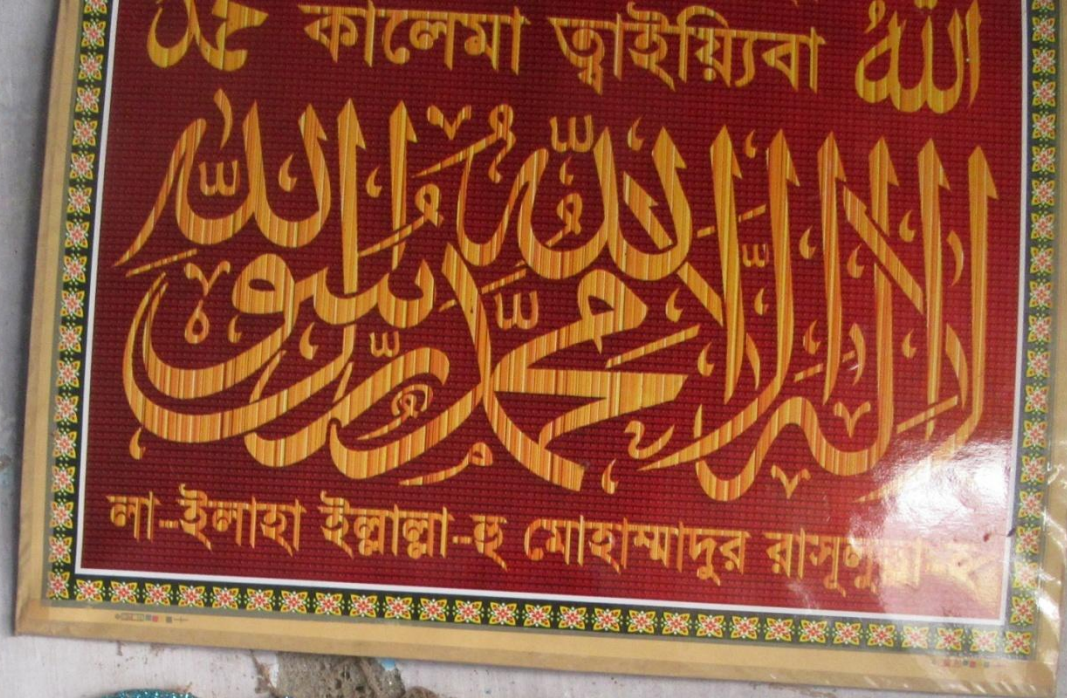 محمد কালেমা ত্বাইয়্যিবা الله
لا إله إلا الله محمد رسول الله
লা-ইলাহা ইল্লাল্লা-হু মোহাম্মাদুর রাসূলুল্লাহ